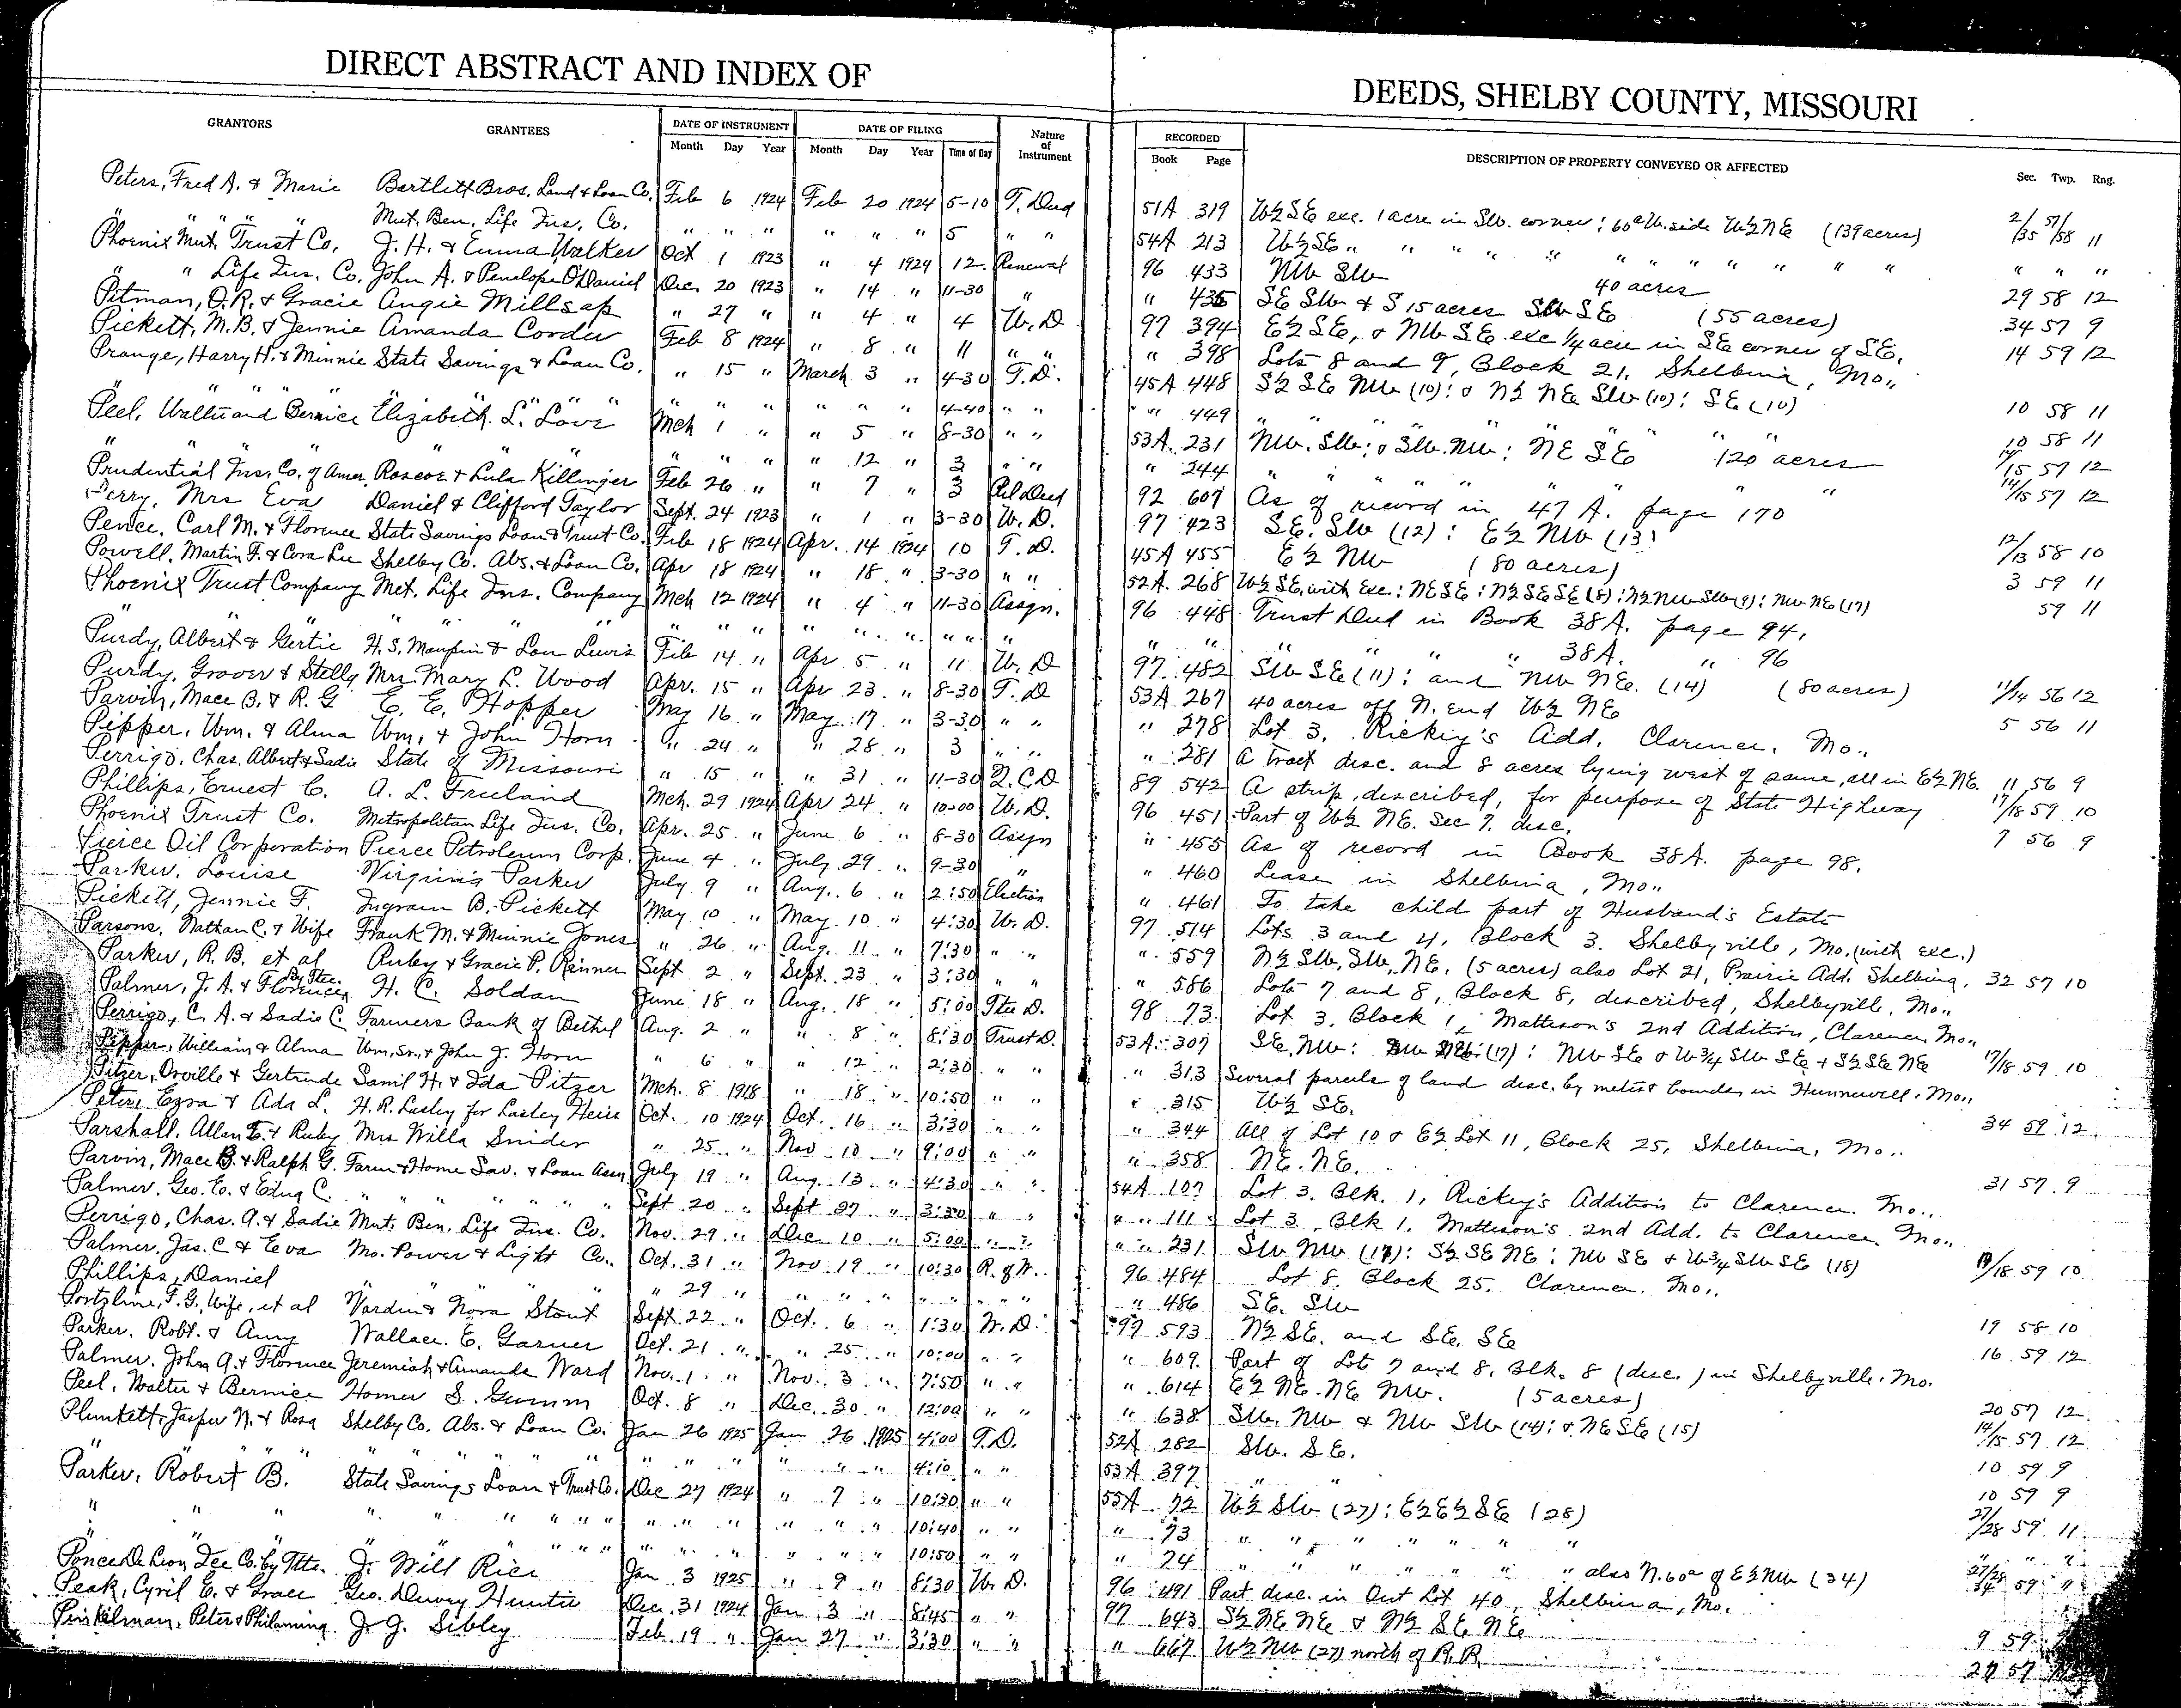 DIRECT ABSTRACT AND INDEX OF DEEDS, SHELBY COUNTY, MISSOURI
GRANTORS GRANTEES DATE OF INSTRUMENT DATE OF FILING Nature of Instrument RECORDED DESCRIPTION OF PROPERTY CONVEYED OR AFFECTED
Month Day Year Month Day Year Time of Day Book Page Sec. Twp. Rng.
Peters, Fred A. & Marie Bartlett Bros. Land & Loan Co. Feb 6 1924 Feb 20 1924 5-10 T. Deed 51A 319 W½ SE exc. 1 acre in SW. corner; 60a W. side W½ NE (139 acres) 2/35 57/58 11
" " " " Mut. Ben. Life Ins. Co. " " " " " " 5 " " 54A 213 W½ SE " " " " " " " " " " " " "
Phoenix Mut. Trust Co. J. H. & Emma Walker Oct 1 1923 " 4 1924 12 Renewal 96 433 NW SW 40 acres 29 58 12
" " Life Ins. Co. John A. & Penelope O'Daniel Dec. 20 1923 " 14 " 11-30 " " 435 SE SW & S 15 acres SW SE (55 acres) 34 57 9
Pitman, O. R. & Gracie Angie Millsap " 27 " " 4 " 4 W. D 97 394 E½ SE, & NW SE exc ¼ acre in SE corner of SE. 14 59 12
Pickett, M. B. & Jennie Amanda Corder Feb 8 1924 " 8 " 11 " " " 398 Lots 8 and 9, Block 21, Shelbina, Mo..
Prange, Harry H. & Minnie State Savings & Loan Co. " 15 " March 3 " 4-30 T. D. 45A 448 S½ SE NW (10): & N½ NE SW (10): SE (10) 10 58 11
" " " " " " " " " " " " 4-40 " " " " 449 " " " " 10 58 11
Peel, Walter and Bernice Elizabeth L. Love Mch 1 " " 5 " 8-30 " " 53A 231 NW. SW; & SW. NW; NE SE 120 acres 14/15 57 12
" " " " " " " " " 12 " 3 " " " 244 " " " " " " 14/15 57 12
Prudential Ins. Co. of Amer. Roscoe & Lula Killinger Feb 26 " " 7 " 3 Rel Deed 92 607 As of record in 47 A. page 170
Perry, Mrs Eva Daniel & Clifford Taylor Sept. 24 1923 " 1 " 3-30 W. D. 97 423 SE. SW (12): E½ NW (13) 12/13 58 10
Pence, Carl M. & Florence State Savings Loan & Trust Co. Feb 18 1924 Apr. 14 1924 10 T. D. 45A 455 E½ NW (80 acres) 3 59 11
Powell, Martin F. & Cora Lee Shelby Co. Abs. & Loan Co. Apr 18 1924 " 18 " 3-30 " " 52A 268 W½ SE, with Exc: NE SE: N½ SE SE (8): N½ NW SW (9): NW NE (17) 59 11
Phoenix Trust Company Met. Life Ins. Company Mch 12 1924 " 4 " 11-30 Assgn. 96 448 Trust Deed in Book 38A. page 94,
" " " " " " " " " " " " " " " " " " " " " 38A. " 96
Purdy, Albert & Gertie H. S. Maupin & Lou Lewis Feb 14 " Apr 5 " 11 W. D 97 482 SW SE (11): and NW NE. (14) (80 acres) 11/14 56 12
Purdy, Grover & Stella Mrs. Mary L. Wood Apr. 15 " Apr 23 " 8-30 T. D 53A 267 40 acres off N. end W½ NE 5 56 11
Parvin, Mace B. & R. G E. E. Hopper May 16 " May 17 " 3-30 " " " 278 Lot 3, Rickey's Add. Clarence, Mo..
Pepper, Wm. & Alma Wm. & John Horn " 24 " " 28 " 3 " " " 281 A Tract disc. and 8 acres lying west of same, all in E½ NE. 11 56 9
Perrigo, Chas. Albert & Sadie State of Missouri " 15 " " 31 " 11-30 Q. C. D 89 542 A strip, described, for purpose of State Highway 17/18 59 10
Phillips, Ernest C. A. L. Freeland Mch. 29 1924 Apr 24 " 10-00 W. D. 96 451 Part of W½ NE. Sec 7. disc. 7 56 9
Phoenix Trust Co. Metropolitan Life Ins. Co. Apr. 25 " June 6 " 8-30 Assgn " 455 As of record in Book 38A. page 98.
Pierce Oil Corporation Pierce Petroleum Corp. June 4 " July 29 " 9-30 " " 460 Lease in Shelbina, Mo..
Parker, Louise Virginia Parker July 9 " Aug. 6 " 2:50 Election " 461 To take child part of Husband's Estate
Pickett, Jennie F. Ingram B. Pickett May 10 " May 10 " 4:30 W. D. 97 514 Lots 3 and 4, Block 3. Shelbyville, Mo. (with exc.)
Parsons, Nathan C. & Wife Frank M. & Minnie Jones " 26 " Aug. 11 " 7:30 " " " 559 N½ SW, SW, NE. (5 acres) also Lot 21, Prairie Add. Shelbina, 32 57 10
Parker, R. B. et al Ruby & Gracie P. Renner Sept 2 " Sept. 23 " 3:30 " " " 586 Lots 7 and 8, Block 8, described, Shelbyville, Mo..
Palmer, J. A. & Florence By Ttee. H. C. Soldan June 18 " Aug. 18 " 5:00 Ttee D. 98 73 Lot 3, Block 1, Mattison's 2nd Addition, Clarence, Mo..
Perrigo, C. A. & Sadie C. Farmers Bank of Bethel Aug. 2 " " 8 " 8:30 Trust D. 53A 307 SE, NW: (17): NW SE & W¾ SW SE & S½ SE NE 17/18 59 10
Pepper, William & Alma Wm. Sr. & John J. Horn " 6 " " 12 " 2:30 " " " 313 Several parcels of land disc. by metes & bounds in Hunnewell, Mo..
Pitzer, Orville & Gertrude Saml H. & Ida Pitzer Mch. 8 1918 " 18 " 10:50 " " " 315 W½ SE. 34 59 12
Peters, Ezra & Ada L. H. R. Lasley for Lasley Heirs Oct. 10 1924 Oct. 16 " 3:30 " " " 344 All of Lot 10 & E½ Lot 11, Block 25, Shelbina, Mo..
Parshall, Allen E. & Ruby Mrs Willa Snider " 25 " Nov 10 " 9:00 " " " 358 NE. NE. 31 57 9
Parvin, Mace B. & Ralph G. Farm & Home Sav. & Loan Assn July 19 " Aug. 13 " 4:30 " " 54A 107 Lot 3. Blk. 1, Rickey's Addition to Clarence. Mo..
Palmer, Geo. E. & Edna C. " " " " " " " Sept 20 " Sept 27 " 3:30 " " " " 111 Lot 3, Blk 1. Mattison's 2nd Add. to Clarence. Mo..
Perrigo, Chas. A. & Sadie Mut. Ben. Life Ins. Co. Nov. 29 " Dec 10 " 5:00 " " " " 231 SW NW (17): S½ SE NE: NW SE & W¾ SW SE (18) 17/18 59 10
Palmer, Jas. C & Eva Mo. Power & Light Co. Oct. 31 " Nov 19 " 10:30 R. of W. 96 484 Lot 8, Block 25, Clarence. Mo..
Phillips, Daniel " " " " " 29 " " " " " " " " 486 SE. SW 19 58 10
Portzline, F. G., Wife, et al Vardin & Nora Stout Sept. 22 " Oct. 6 " 1:30 W. D. 97 593 N½ SE. and SE. SE 16 59 12
Parker, Robt. & Amy Wallace E. Garner Oct. 21 " " 25 " 10:00 " " " 609 Part of Lots 7 and 8, Blk. 8 (disc.) in Shelbyville, Mo.
Palmer, John A. & Florence Jeremiah & Amanda Ward Nov. 1 " Nov. 3 " 7:50 " " " 614 E½ NE. NE NW. (5 acres) 20 57 12
Peel, Walter & Bernice Homer S. Gumm Oct. 8 " Dec. 30 " 12:00 " " " 638 SW. NW & NW SW (14): & NE SE (15) 14/15 57 12
Plunkett, Jasper N. & Rosa Shelby Co. Abs. & Loan Co. Jan 26 1925 Jan 26 1925 4:00 T. D. 52A 282 SW. SE. 10 59 9
" " " " " " " " " " " " " " 4:10 " " 53A 397 " " 10 59 9
Parker, Robert B. State Savings Loan & Trust Co. Dec 27 1924 " 7 " 10:30 " " 55A 72 W½ SW (27): E½ E½ SE (28) 27/28 59 11
" " " " " " " " " " " " " " 10:40 " " " 73 " " " " " " " " " "
" " " " " " " " " " " 10:50 " " " 74 " " " " " " " also N. 60a of E½ NW (34) 27/28 34 59 "
Ponce De Leon Dee Co. by Ttee. J. Will Rice Jan 3 1925 " 9 " 8:30 W. D. 96 491 Part disc. in Out Lot 40, Shelbina, Mo.
Peak, Cyril E. & Grace Geo. Dewey Hunter Dec. 31 1924 Jan 3 " 8:45 " " 97 643 S½ NE NE & N½ SE NE 9 59
Pinkelman, Peter & Philamina J. G. Sibley Feb 19 " Jan 27 " 3:30 " " " 667 W½ NW (27) north of R. R. 27 57